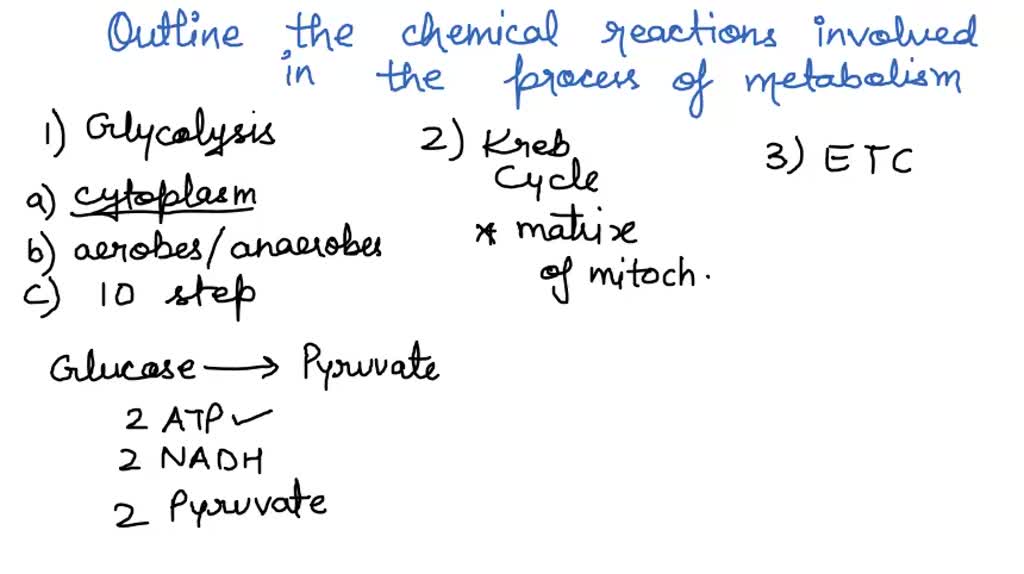 Outline the chemical reactions involved
in the process of metabolism
1) Glycolysis
a) cytoplasm
b) aerobes/anaerobes
c) 10 step
Glucose → Pyruvate
2 ATP ✓
2 NADH
2 Pyruvate
2) Kreb
Cycle
* matrix
of mitoch.
3) ETC